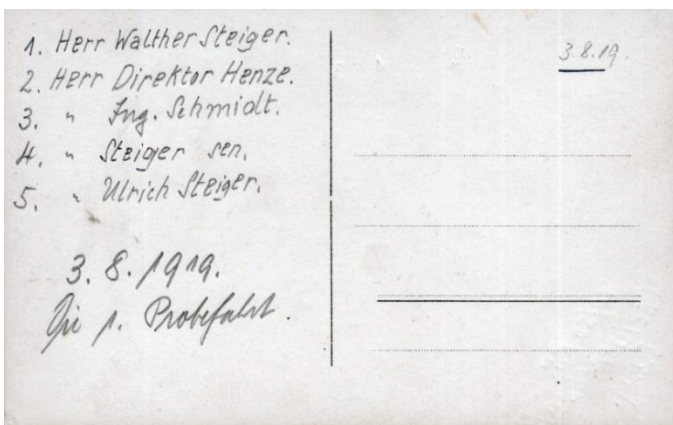 1. Herr Walther Steiger.
2. Herr Direktor Henze.
3. " Ing. Schmidt.
4. " Steiger sen.
5. " Ulrich Steiger.
3. 8. 1919.
Die 1. Probefahrt.
3.8.19.